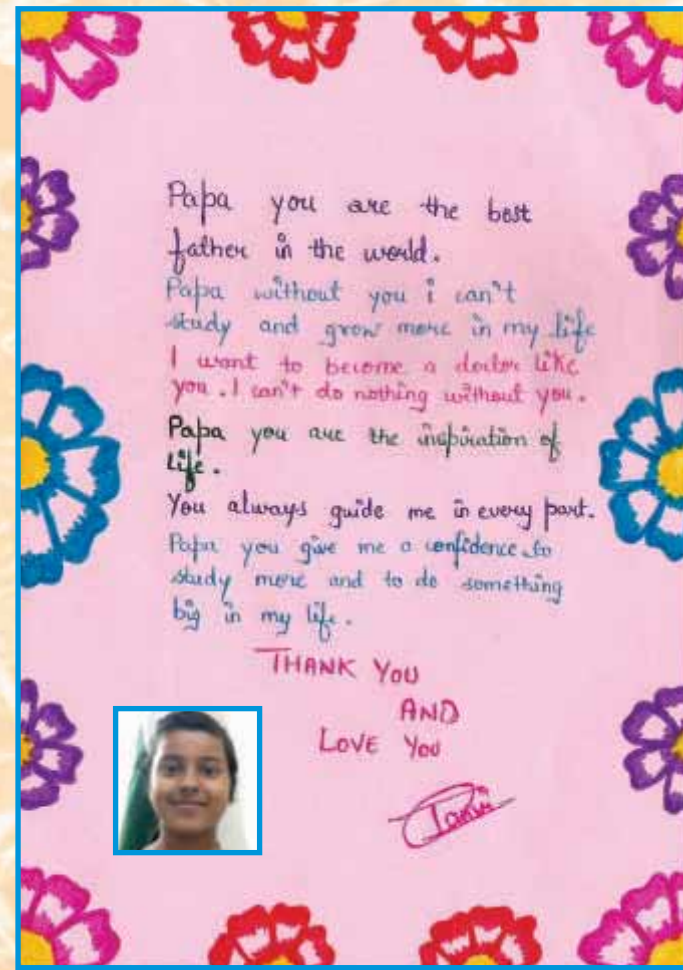 Papa you are the best
father in the world.
Papa without you i can't
study and grow more in my life
I want to become a doctor like
you. I can't do nothing without you.
Papa you are the inspiration of
life.
You always guide me in every part.
Papa you give me a confidence to
study more and to do something
big in my life.
THANK YOU
AND
LOVE YOU